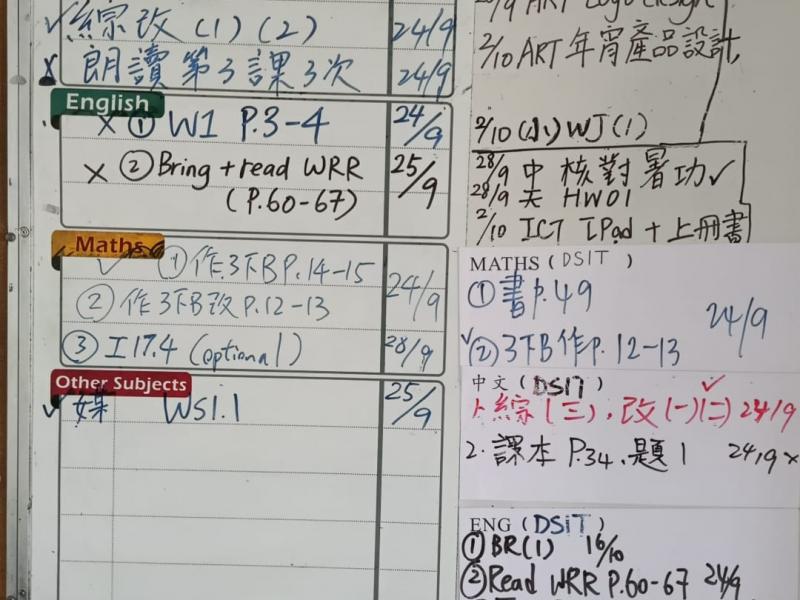 ✓ 綜改 (1) (2) 24/9
x 朗讀 第3課3次 24/9
English
x ① W1 P.3-4 24/9
x ② Bring + read WRR 25/9
(P.60-67)
Maths
✓ ① 作3下B P.14-15
② 作3下B改 P.12-13 24/9
③ I17.4 (optional) 28/9
Other Subjects
✓ WS1.1 25/9
/9 ART Logo Design
2/10 ART 年宵產品設計
2/10 (小) WJ(1)
28/9 中 核對暑功 ✓
28/9 HW01
2/10 ICT IPad + 上冊書
MATHS ( DSIT )
① 書P.49
24/9
✓② 3下B作P. 12-13
中文 ( DSIT )
綜(三), 改(一)(二) 24/9 ✓
2. 課本 P.34, 題1 24/9 x
ENG ( DSIT )
① BR(1) 16/10
② Read WRR P.60-67 24/9